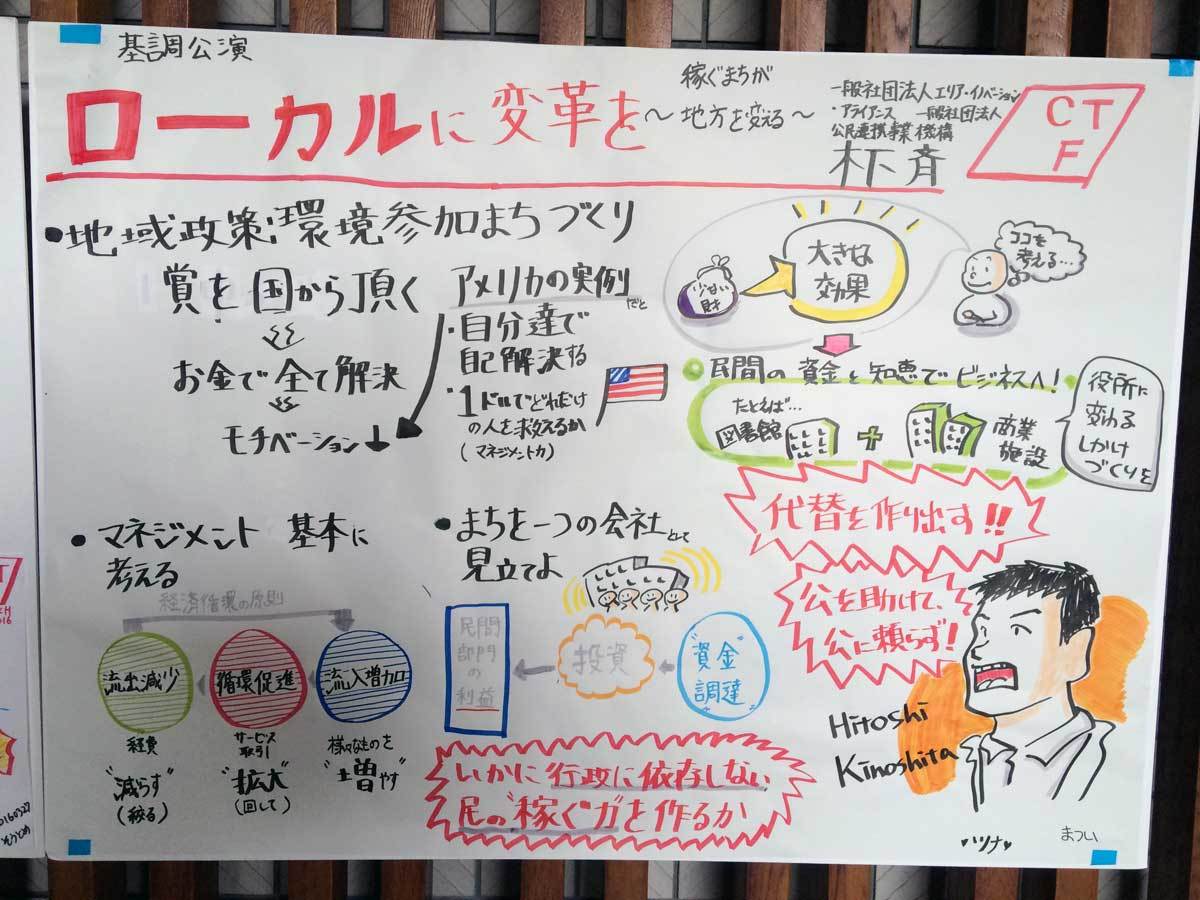 基調公演
ローカルに変革を
～稼ぐまちが
地方を変える～
一般社団法人エリア・イノベーション
・アライアンス 一般社団法人
公民連携事業機構
木下 斉
CT
F
・地域政策:環境参加まちづくり
賞を国から頂く
お金で全て解決
モチベーション↓
アメリカの実例だと
・自分達で
自己解決する
"1ドルでどれだけ
の人を救えるか
(マネジメント力)
少ない
財
大きな
効果
ココを
考える…
民間の資金と知恵でビジネスへ!
たとえば…
図書館
+
商業
施設
役所に
変わる
しかけ
づくりを
代替を作り出す!!
公を助けて、
公に頼らず!
Hitoshi
Kinoshita
・マネジメント 基本に
考える
経済循環の原則
流出減少
循環促進
流入増加
経費
"減らす"
(絞る)
サービス
取引
"拡大"
(回して)
様々なものを
"増やす"
・まちを一つの会社として
見立てよ
民間
部門
の
利益
投資
"資金"
調達
いかに行政に依存しない
民の"稼ぐ"力を作るか
ハツナ
まつい
2016